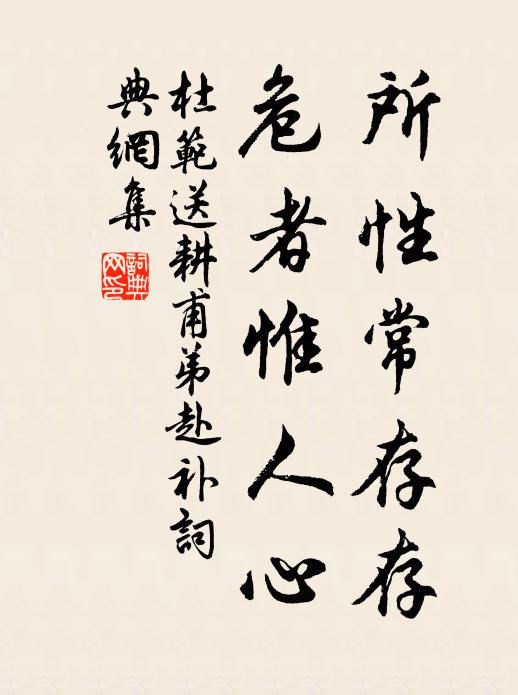 所性常存存
危者惟人心
杜範送耕甫弟赴补詞
典網集
詞典網印